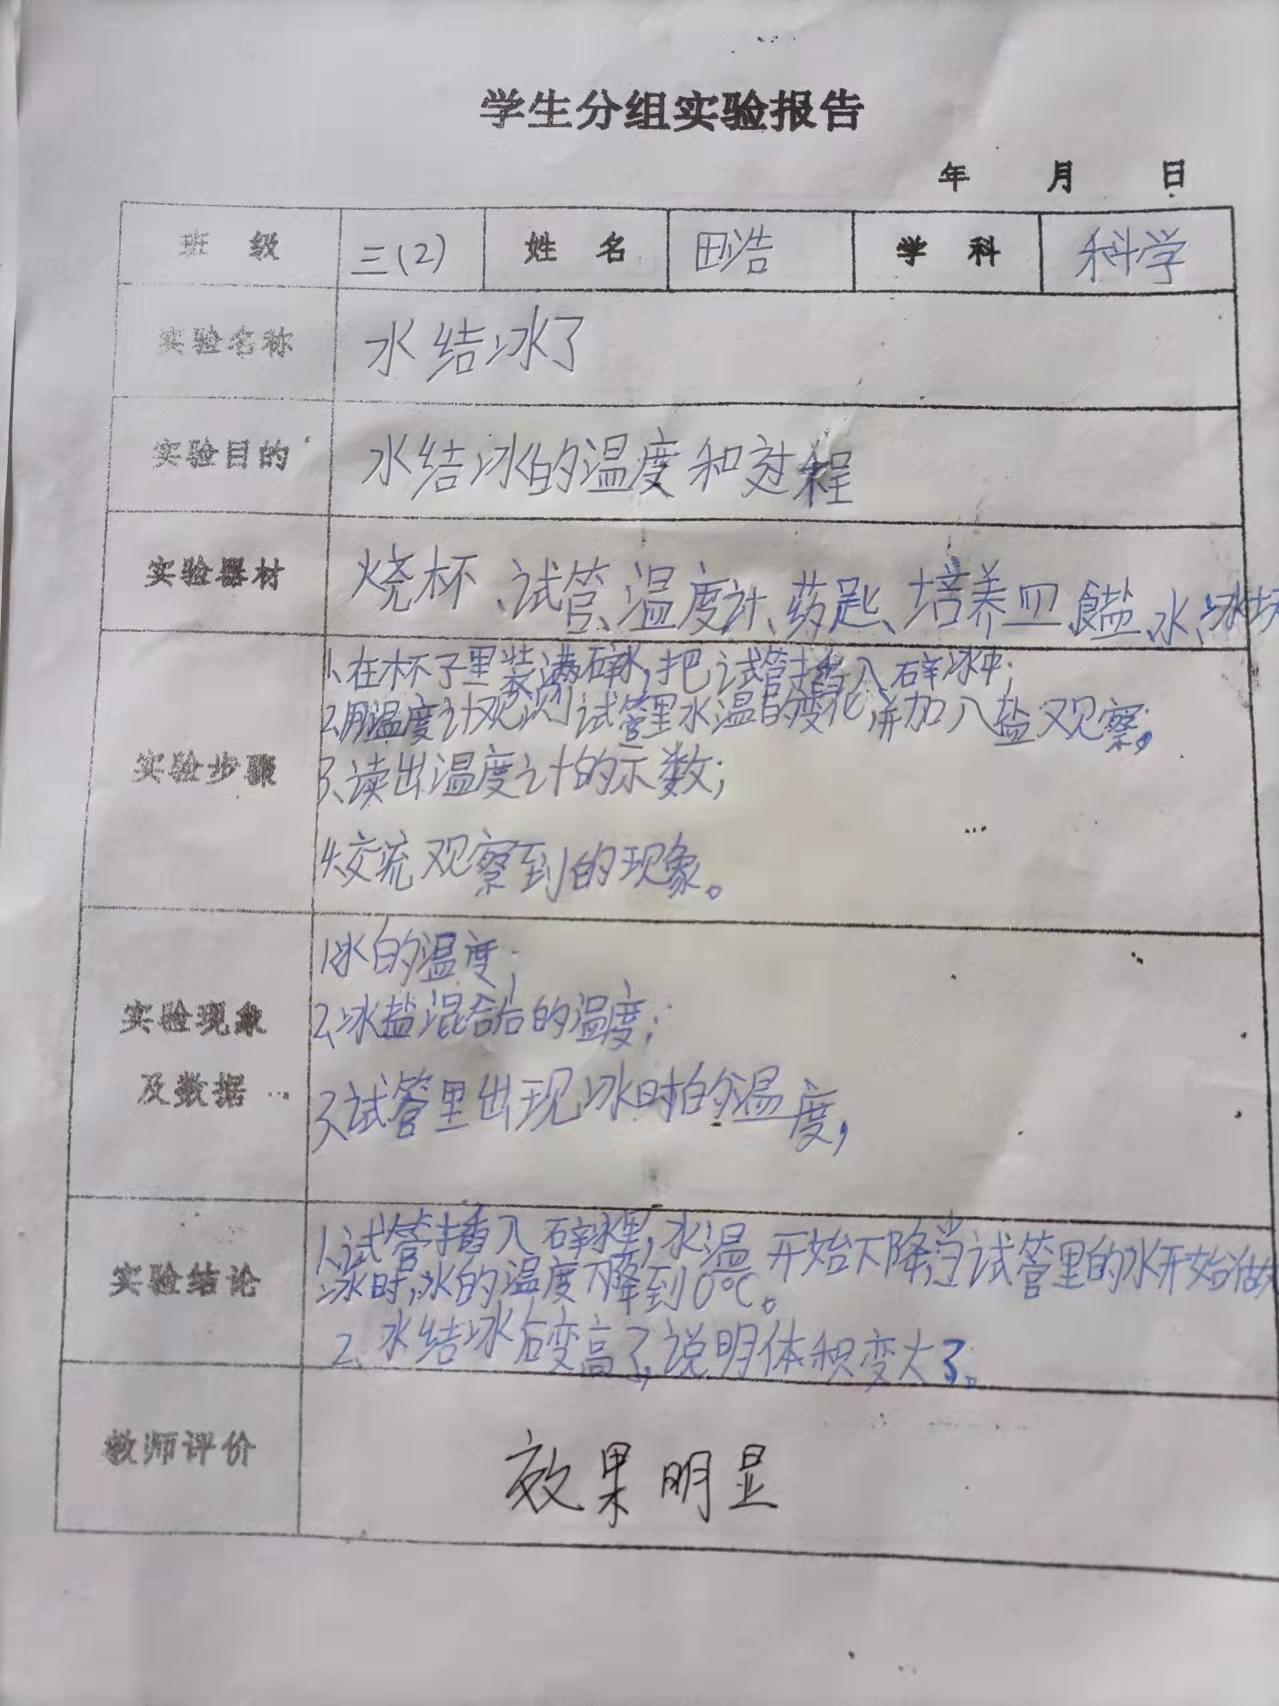 学生分组实验报告
年 月 日
班 级 三(2) 姓 名 田浩 学 科 科学
实验名称 水结冰了
实验目的 水结冰的温度和过程
实验器材 烧杯、试管、温度计、药匙、培养皿、食盐、水、冰块
实验步骤
1、在杯子里装满碎冰,把试管插入碎冰中;
2、用温度计观测试管里水温的变化,并加入盐观察;
3、读出温度计的示数;
4、交流观察到的现象。
实验现象
及数据
1、冰的温度;
2、冰盐混合后的温度;
3、试管里出现冰时的温度,
实验结论
1、试管插入碎冰里,水温开始下降,当试管里的水开始
冰时,水的温度下降到0℃。
2、水结冰后变高了,说明体积变大了。
教师评价 效果明显